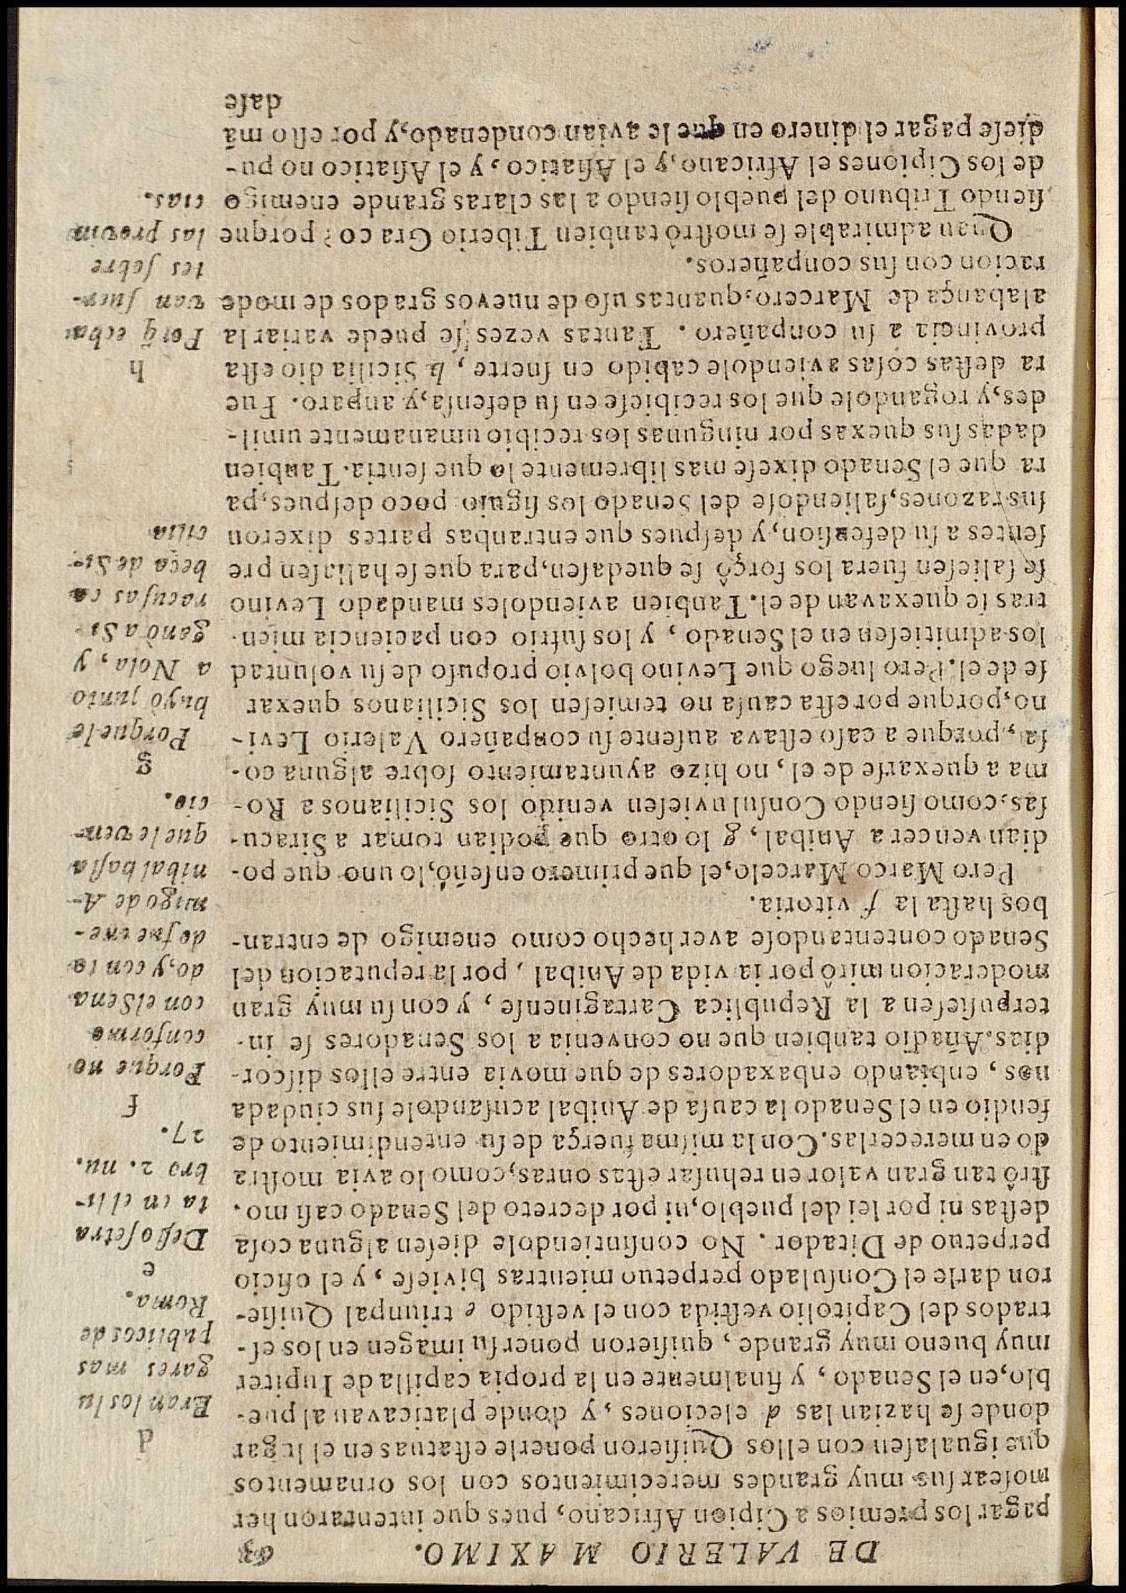 DE VALERIO MAXIMO. 63
pagar los premios a Cipion Africano, pues que intentaron her
mosear sus muy grandes merecimientos con los ornamentos
que igualasen con ellos Quisieron ponerle estatuas en el lugar
donde se hazian las d eleciones, y donde platicavan al pue-
blo, en el Senado, y finalmente en la propia capilla de Iupiter
muy bueno muy grande, quisieron poner su imagen en los es-
trados del Capitolio vestida con el vestido e triunpal Quisie-
ron darle el Consulado perpetuo mientras biviese, y el oficio
perpetuo de Ditador. No consintiendole diesen alguna cosa
destas ni por lei del pueblo, ni por decreto del Senado casi mo.
strô tan gran valor en rehusar estas onras, como lo avia mostra
do en merecerlas. Con la misma fuerça de su entendimiento de
fendio en el Senado la causa de Anibal acusandole sus ciudada
nos, enbiando enbaxadores de que movia entre ellos discor-
dias. Añadio tanbien que no convenia a los Senadores se in-
terpusiesen a la Republica Cartaginense, y con su muy gran
moderacion mirô por la vida de Anibal, por la reputacion del
Senado contentandose aver hecho como enemigo de entran-
bos hasta la f vitoria.
Pero Marco Marcelo, el que primero enseñô, lo uno que po-
dian vencer a Anibal, g lo otro que podian tomar a Siracu-
sas, como siendo Consul uviesen venido los Sicilianos a Ro-
ma a quexarse de el, no hizo ayuntamiento sobre alguna co-
sa, porque a caso estava ausente su conpañero Valerio Levi-
no, porque por esta causa no temiesen los Sicilianos quexar
se de el. Pero luego que Levino bolvio propuso de su voluntad
los admitiesen en el Senado, y los sufrio con paciencia mien-
tras se quexavan de el. Tanbien aviendoles mandado Levino
se saliesen fuera los forçô se quedasen, para que se hallasen pre
sentes a su defension, y despues que entranbas partes dixeron
sus razones, saliendose del Senado los siguio poco despues, pa
ra que el Senado dixese mas libremente lo que sentia. Tanbien
dadas sus quexas por ningunas los recibio umanamente umil-
des, y rogandole que los recibiese en su defensa, y anparo. Fue
ra destas cosas aviendole cabido en suerte, h Sicilia dio esta
provincia a su conpañero. Tantas vezes se puede variar la
alabança de Marcero, quantas uso de nuevos grados de mode
racion con sus conpañeros.
Quan admirable se mostrô tanbien Tiberio Graco? porque
siendo Tribuno del pueblo siendo a las claras grande enemigo
de los Cipiones el Africano, y el Asiatico, y el Asiatico no pu-
diese pagar el dinero en que le avian condenado, y por esto mã
dase
d
Eran los lu
gares mas
publicos de
Roma.
e
Desto se tra
ta en el li-
bro 2. nu.
27.
f
Porque no
conforme
con el Sena
do, y con to
do fue ene-
migo de A-
nibal hasta
que le ven-
cio.
g
Porque le
huyô junto
a Nola, y
ganô a Si-
racusas ca
beça de Si-
cilia
h
Porq̃ echa
van suer-
tes sobre
las provin
cias.